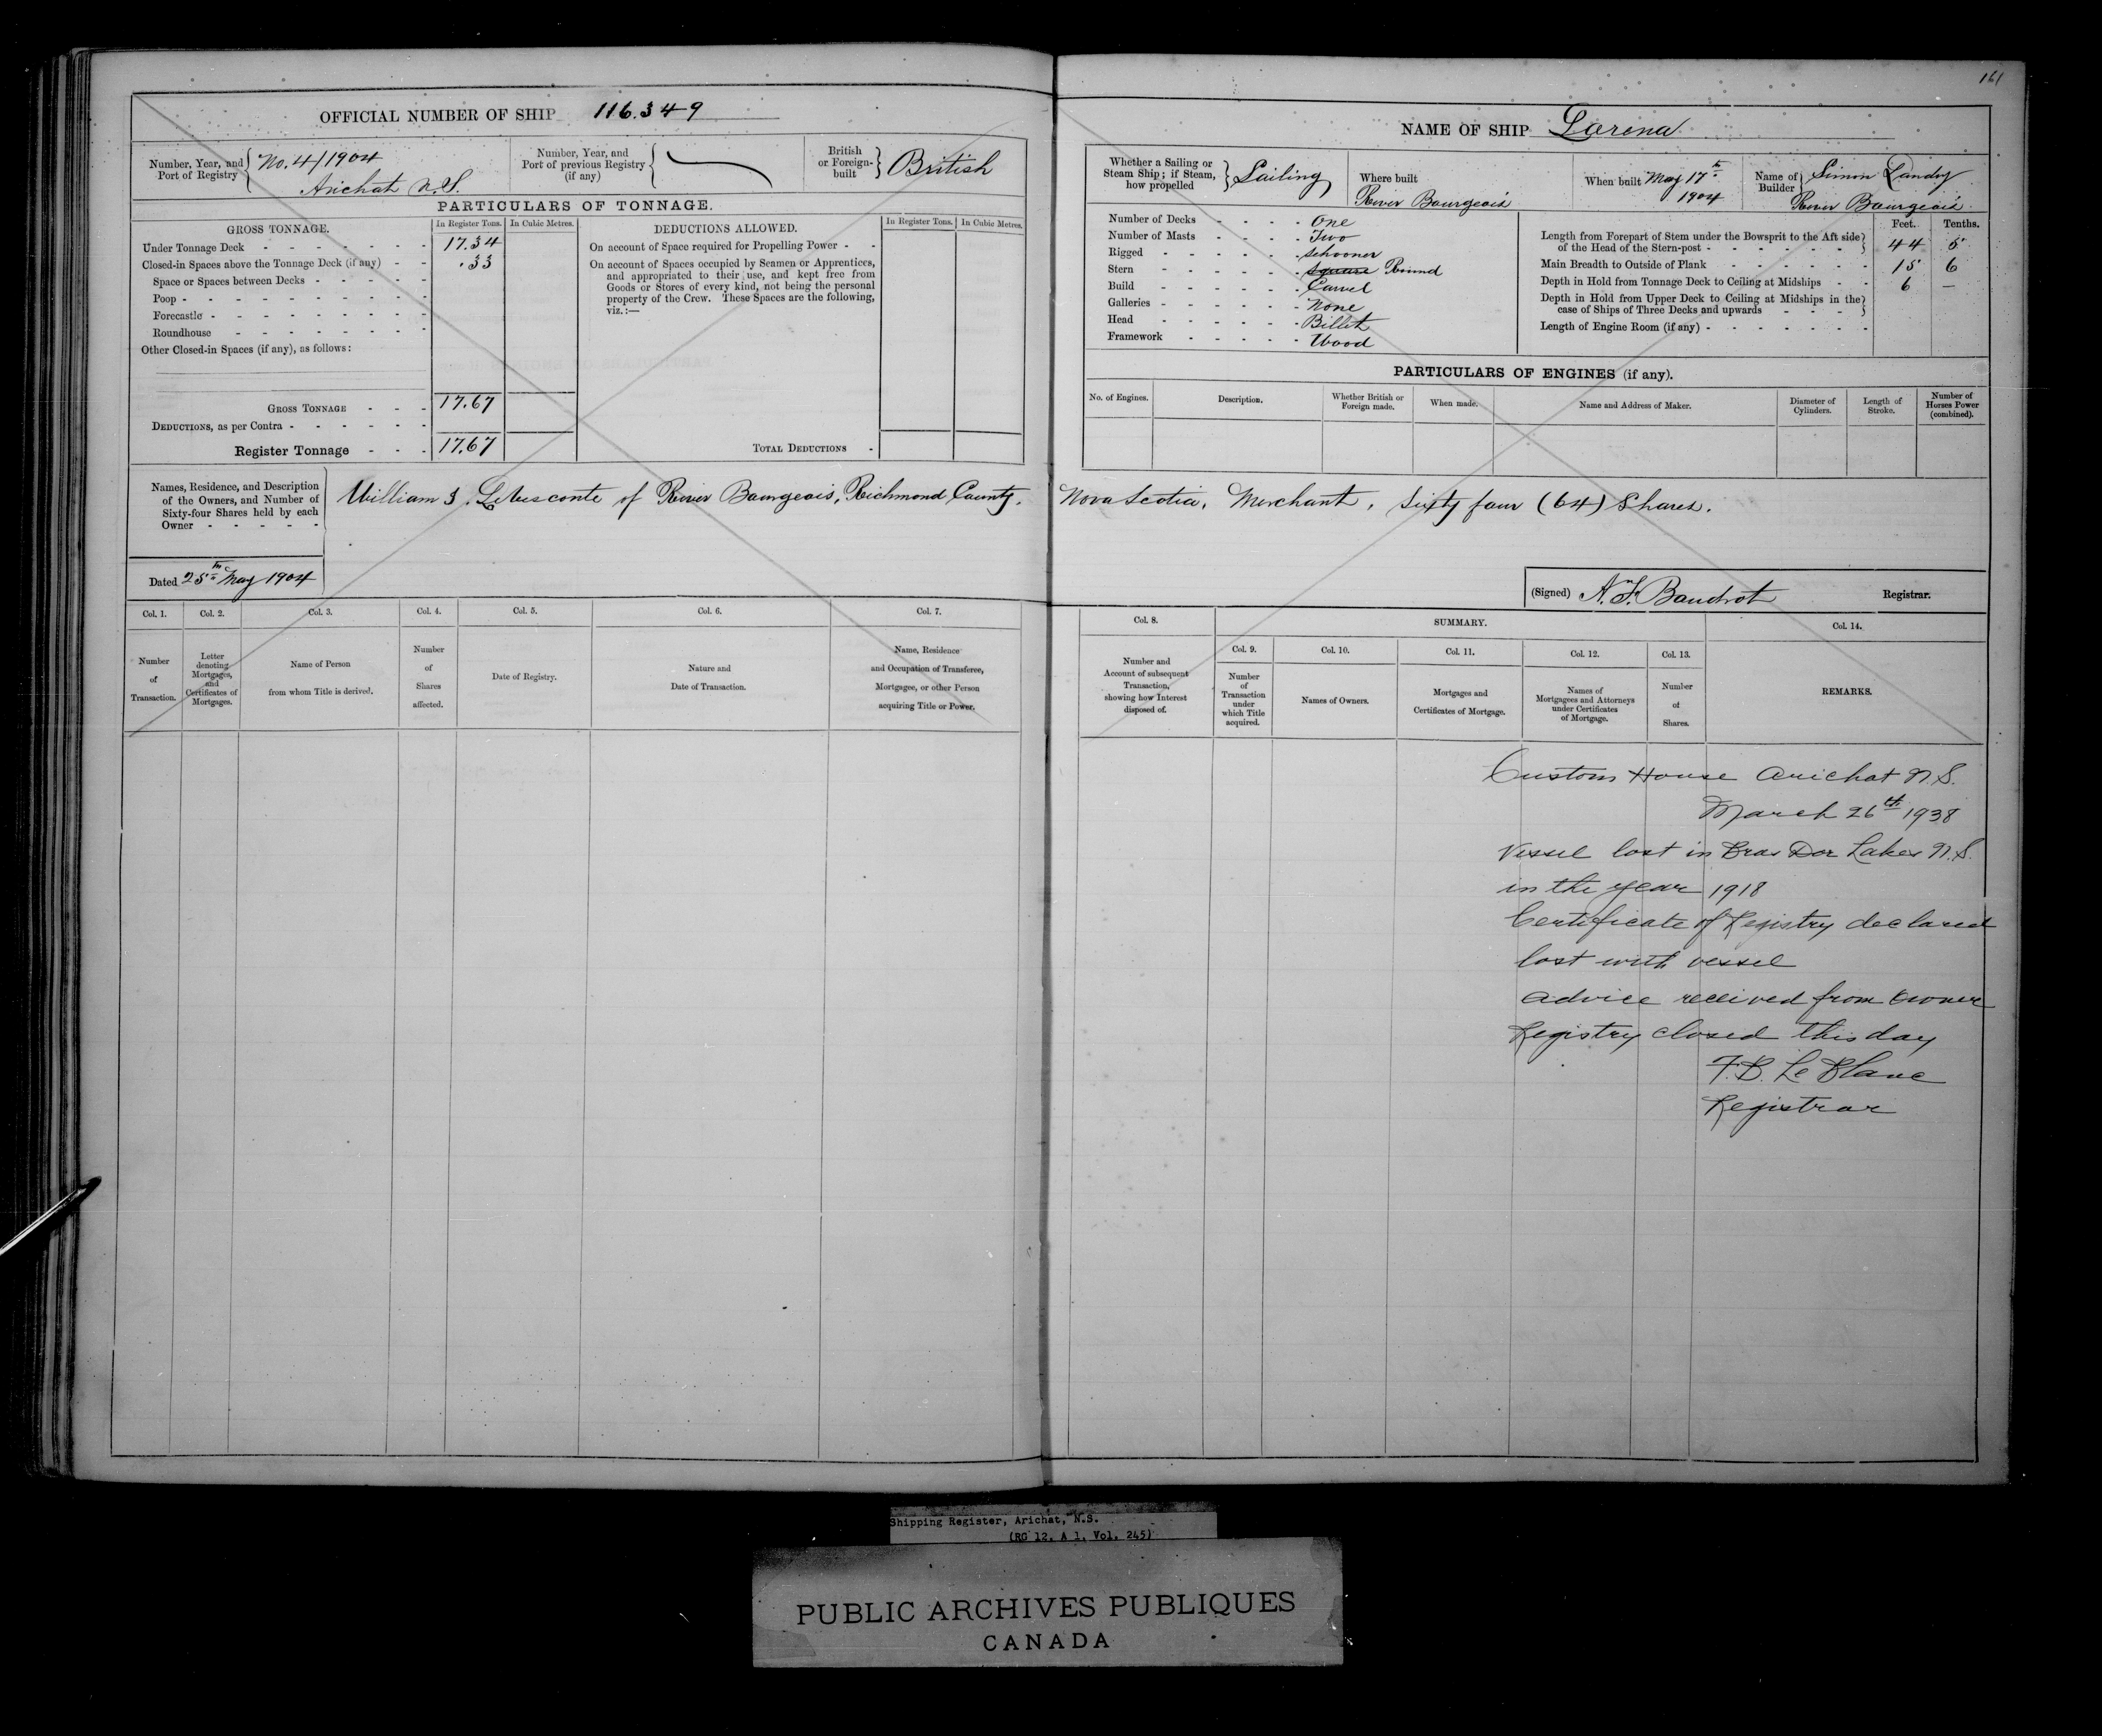 161
OFFICIAL NUMBER OF SHIP 116.349
Number, Year, and Port of Registry No. 4/1904 Arichat N.S.
Number, Year, and Port of previous Registry (if any)
British or Foreign-built British
PARTICULARS OF TONNAGE.
GROSS TONNAGE. In Register Tons. In Cubic Metres.
Under Tonnage Deck - - - - - - - 17.34
Closed-in Spaces above the Tonnage Deck (if any) - - .33
Space or Spaces between Decks - - - - -
Poop - - - - - - - - - -
Forecastle - - - - - - - - -
Roundhouse - - - - - - - -
Other Closed-in Spaces (if any), as follows:
GROSS TONNAGE - - - 17.67
DEDUCTIONS, as per Contra - - - - - -
Register Tonnage - - - 17.67
DEDUCTIONS ALLOWED. In Register Tons. In Cubic Metres.
On account of Space required for Propelling Power - -
On account of Spaces occupied by Seamen or Apprentices,
and appropriated to their use, and kept free from
Goods or Stores of every kind, not being the personal
property of the Crew. These Spaces are the following,
viz.:—
TOTAL DEDUCTIONS -
NAME OF SHIP Lorena
Whether a Sailing or Steam Ship; if Steam, how propelled Sailing
Where built River Bourgeois
When built May 17th 1904
Name of Builder Simon Landry River Bourgeois
Number of Decks - - - - One
Number of Masts - - - - Two
Rigged - - - - - - Schooner
Stern - - - - - - square Round
Build - - - - - - Carvel
Galleries - - - - - - None
Head - - - - - - Billet
Framework - - - - - Wood
Feet. Tenths.
Length from Forepart of Stem under the Bowsprit to the Aft side
of the Head of the Stern-post - - - - - - - 44 5
Main Breadth to Outside of Plank - - - - - - 15 6
Depth in Hold from Tonnage Deck to Ceiling at Midships - - 6 —
Depth in Hold from Upper Deck to Ceiling at Midships in the
case of Ships of Three Decks and upwards - - - -
Length of Engine Room (if any) - - - - - - -
PARTICULARS OF ENGINES (if any).
No. of Engines. Description. Whether British or Foreign made. When made. Name and Address of Maker. Diameter of Cylinders. Length of Stroke. Number of Horses Power (combined).
Names, Residence, and Description
of the Owners, and Number of
Sixty-four Shares held by each
Owner - - - - -
William J. LeVesconte of River Bourgeois, Richmond County, Nova Scotia, Merchant, Sixty four (64) Shares.
Dated 25th May 1904
(Signed) Registrar.
Col. 1. Col. 2. Col. 3. Col. 4. Col. 5. Col. 6. Col. 7.
Number of Transaction.
Letter denoting Mortgages, and Certificates of Mortgages.
Name of Person from whom Title is derived.
Number of Shares affected.
Date of Registry.
Nature and Date of Transaction.
Name, Residence and Occupation of Transferee, Mortgagee, or other Person acquiring Title or Power.
Col. 8. SUMMARY. Col. 14.
Col. 9. Col. 10. Col. 11. Col. 12. Col. 13.
Number and Account of subsequent Transaction, showing how Interest disposed of.
Number of Transaction under which Title acquired.
Names of Owners.
Mortgages and Certificates of Mortgage.
Names of Mortgagees and Attorneys under Certificates of Mortgage.
Number of Shares.
REMARKS.
Custom House Arichat N.S.
March 26th 1938
Vessel lost in Bras Dor Lakes N.S.
in the year 1918
Certificate of Registry declared
lost with vessel
advice received from owner
Registry closed this day
F.B. Le Blanc
Registrar
Shipping Register, Arichat, N.S.
(RG 12, A 1, Vol. 245)
PUBLIC ARCHIVES PUBLIQUES
CANADA